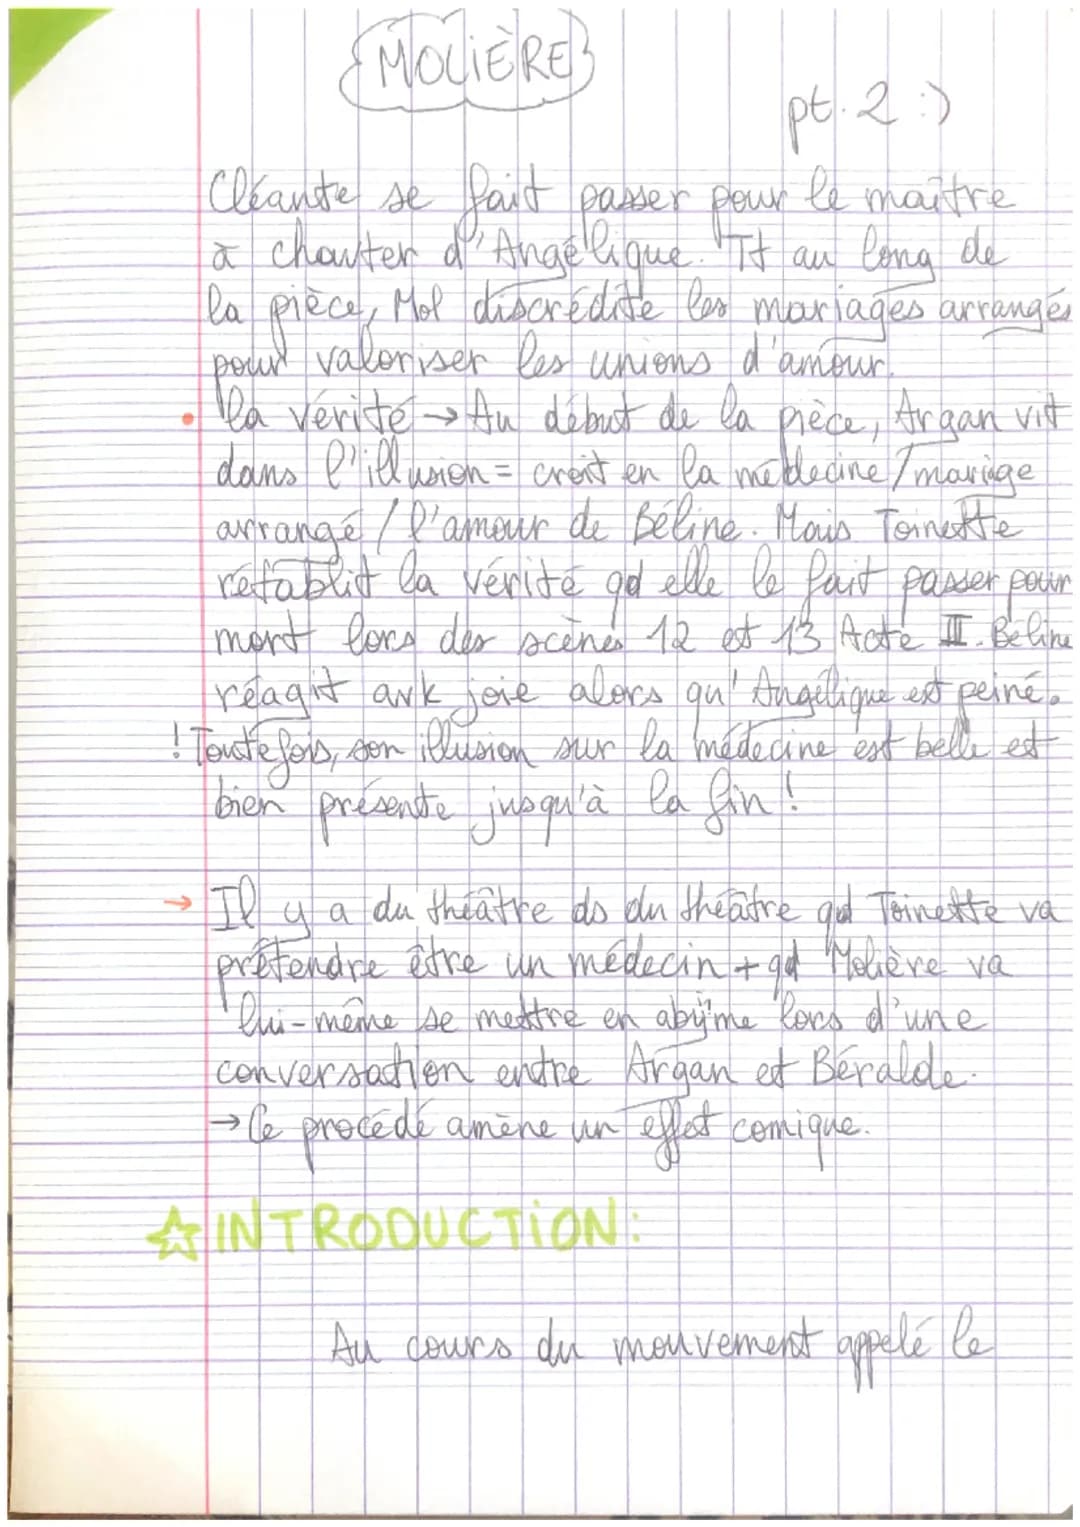 MOLIÈRE
pt. 2 :)
Cléante se fait passer pour le maître
à chanter d'Angélique. Tt au long de
la pièce, Mol discrédite les mariages arrangés
pour valoriser les unions d'amour.
• la vérité → Au début de la pièce, Argan vit
dans l'illusion = croit en la médecine / mariage
arrangé / l'amour de Béline. Mais Toinette
rétablit la vérité qd elle le fait passer pour
mort lors des scènes 12 et 13 Acte III. Béline
réagit avk joie alors qu'Angélique est peiné.
! Toutefois, son illusion sur la médecine est belle est
bien présente jusqu'à la fin !
→ Il y a du théâtre ds du théâtre qd Toinette va
prétendre être un médecin + qd Molière va
lui-même se mettre en abyme lors d'une
conversation entre Argan et Béralde.
→ Ce procédé amène un effet comique.
☆ INTRODUCTION:
Au cours du mouvement appelé le